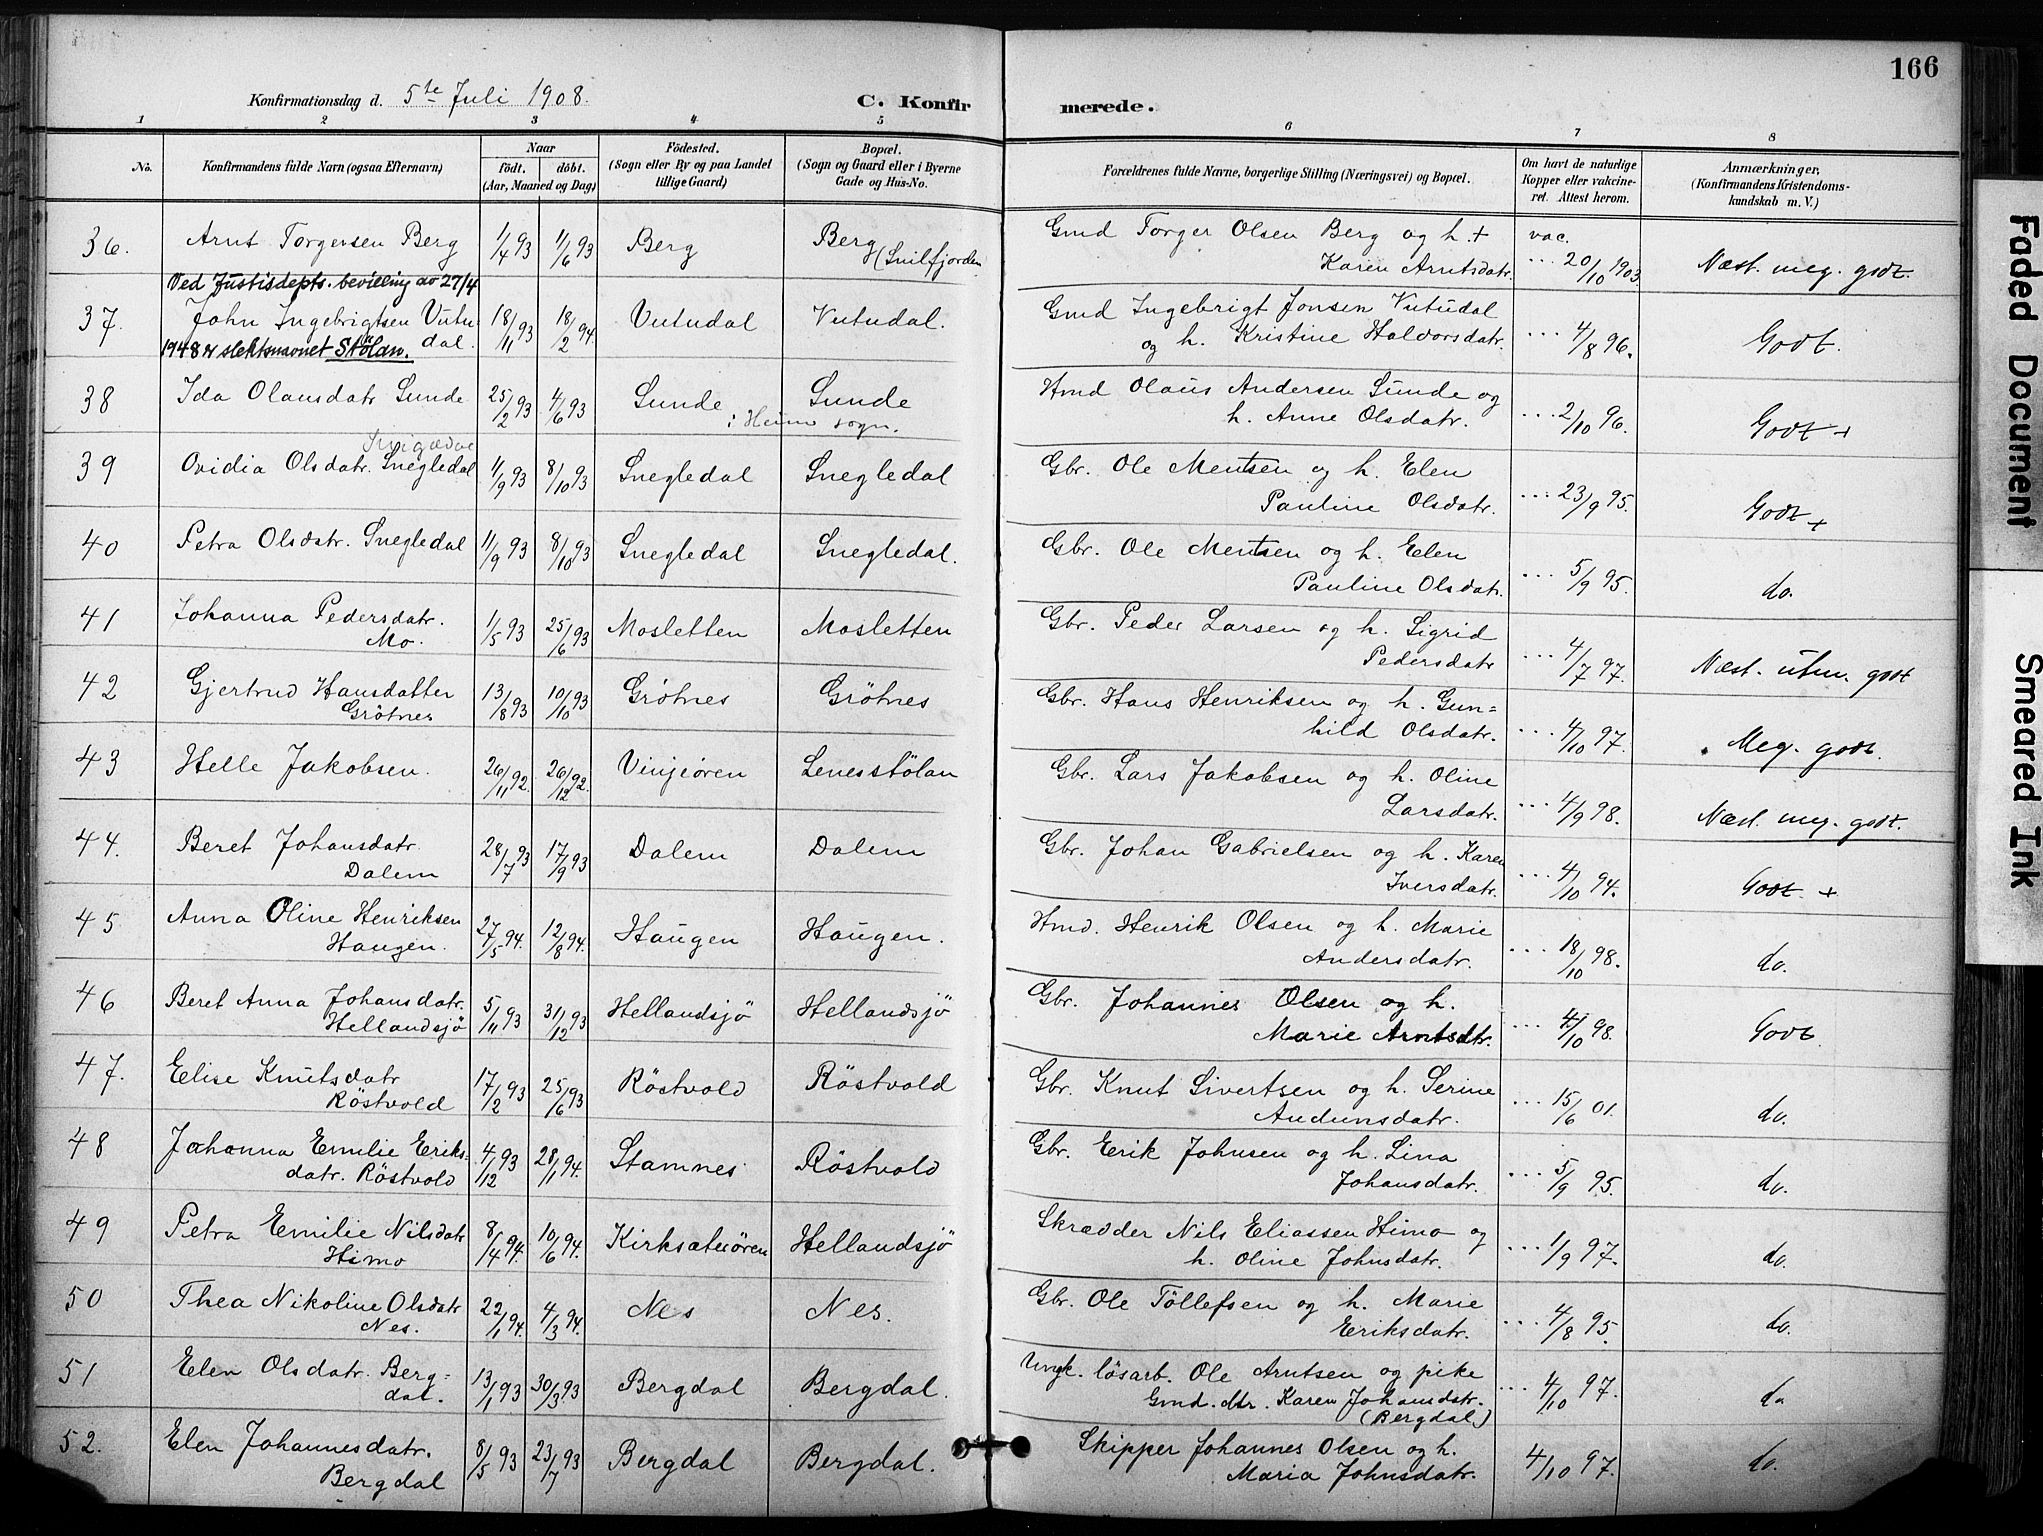 166
Konfirmationsdag d. 5te Juli 1908.
C. Konfirmerede.
1 2 3 4 5 6 7 8
No.
Konfirmandens fulde Navn (ogsaa Efternavn)
Naar
födt. döbt.
(Aar, Maaned og Dag)
Födested.
(Sogn eller By og paa Landet
tillige Gaard)
Bopæl.
(Sogn og Gaard eller i Byerne
Gade og Hus-No.
Forældrenes fulde Navne, borgerlige Stilling (Næringsvei) og Bopæl.
Om havt de naturlige
Kopper eller vakcine-
ret. Attest herom.
Anmærkninger,
(Konfirmandens Kristendoms-
kundskab m. V.)
36. Arnt Torgersen Berg 1/4 93 11/6 93 Berg Berg (Snilfjorden Gmd Torger Olsen Berg og h. +
Karen Arntsdatr. vac. ... 20/10 1903 Næst. meg. godt.
Ved Justisdepts. bevilling av 27/4
37. John Ingebrigtsen Vutudal. 18/11 93 18/2 94. Vutudal Vutudal. Gmd Ingebrigt Jonsen Vutudal
og h. Kristine Haldorsdatr. ... 4/8 96. Godt.
1948 slektsnavnet Stölan.
38 Ida Olausdatr Sunde 25/2 93 4/6 93 Sunde Sunde
i Heim sogn.
Hmd Olaus Andersen Sunde og
h. Anne Olsdatr. ... 2/10 96. Godt +
39 Ovidia Olsdatr. Snegledal 11/9 93 8/10 93 Snegledal Snegledal Gbr. Ole Mentsen og h. Elen
Pauline Olsdatr. ... 23/9 95. Godt +
40 Petra Olsdatr. Snegledal 11/9 93 8/10 93 Snegledal Snegledal. Gbr. Ole Mentsen og h. Elen
Pauline Olsdatr. ... 5/9 95. do.
41 Johanna Pedersdatr.
Mo. 1/5 93 25/6 93 Mosletten Mosletten Gbr. Peder Larsen og h. Sigrid
Pedersdatr ... 4/7 97. Næst. utm. godt
42 Gjertrud Hansdatter
Grötnes 13/8 93 10/10 93 Grötnes Grötnes Gbr. Hans Henriksen og h. Gun=
hild Olsdatr. ... 4/10 97. Meg. godt.
43 Helle Jakobsen. 26/11 92. 26/12 92. Vinjeören Lenesstölan Gbr. Lars Jakobsen og h. Oline
Larsdatr. ... 4/9 98. Næst. meg. godt.
44. Beret Johansdatr.
Dalem 28/7 93 17/9 93 Dalem Dalem Gbr. Johan Gabrielsen og h. Karen
Iversdatr. ... 4/10 94. Godt. +
45 Anna Oline Henriksen
Haugen. 27/5 94. 12/8 94. Haugen Haugen. Hmd. Henrik Olsen og h. Marie
Andersdatr. ... 18/10 98. do.
46 Beret Anna Johansdatr.
Hellandsjö 5/11 93 31/12 93 Hellandsjö Hellandsjö Gbr. Johannes Olsen og h.
Marie Arntsdtr. ... 4/10 98. Godt
47. Elise Knutsdatr
Röstvold 17/2 93 25/6 93 Röstvold Röstvold Gbr. Knut Sivertsen og h. Serine
Audunsdatr. ... 15/6 01. do.
48 Johanna Emilie Eriks=
datr. Röstvold 4/12 93 28/1 94. Stamnes Röstvold Gbr. Erik Johnsen og h. Lina
Johansdatr. ... 5/9 95. do.
49 Petra Emilie Nilsdatr
Himo 8/4 94. 10/6 94. Kirksæterören Hellandsjö Skrædder Nils Eliassen Himo og
h. Oline Johnsdatr. ... 1/9 97. do.
50 Thea Nikoline Olsdatr
Nes. 22/1 94. 4/3 94. Nes Nes. Gbr. Ole Töllefsen og h. Marie
Eriksdatr. ... 4/8 95. do.
51 Elen Olsdatr. Berg=
dal. 13/1 93 30/3 93 Bergdal Bergdal. Ungk. lösarb. Ole Arntsen og pike
Gmd. dtr. Karen Johansdtr.
(Bergdal) ... 4/10 97. do
52. Elen Johannesdatr.
Bergdal 8/5 93 23/7 93 Bergdal Bergdal. Skipper Johannes Olsen og h.
Maria Johnsdatr. 4/10 97. do.
Faded Document
Smeared Ink